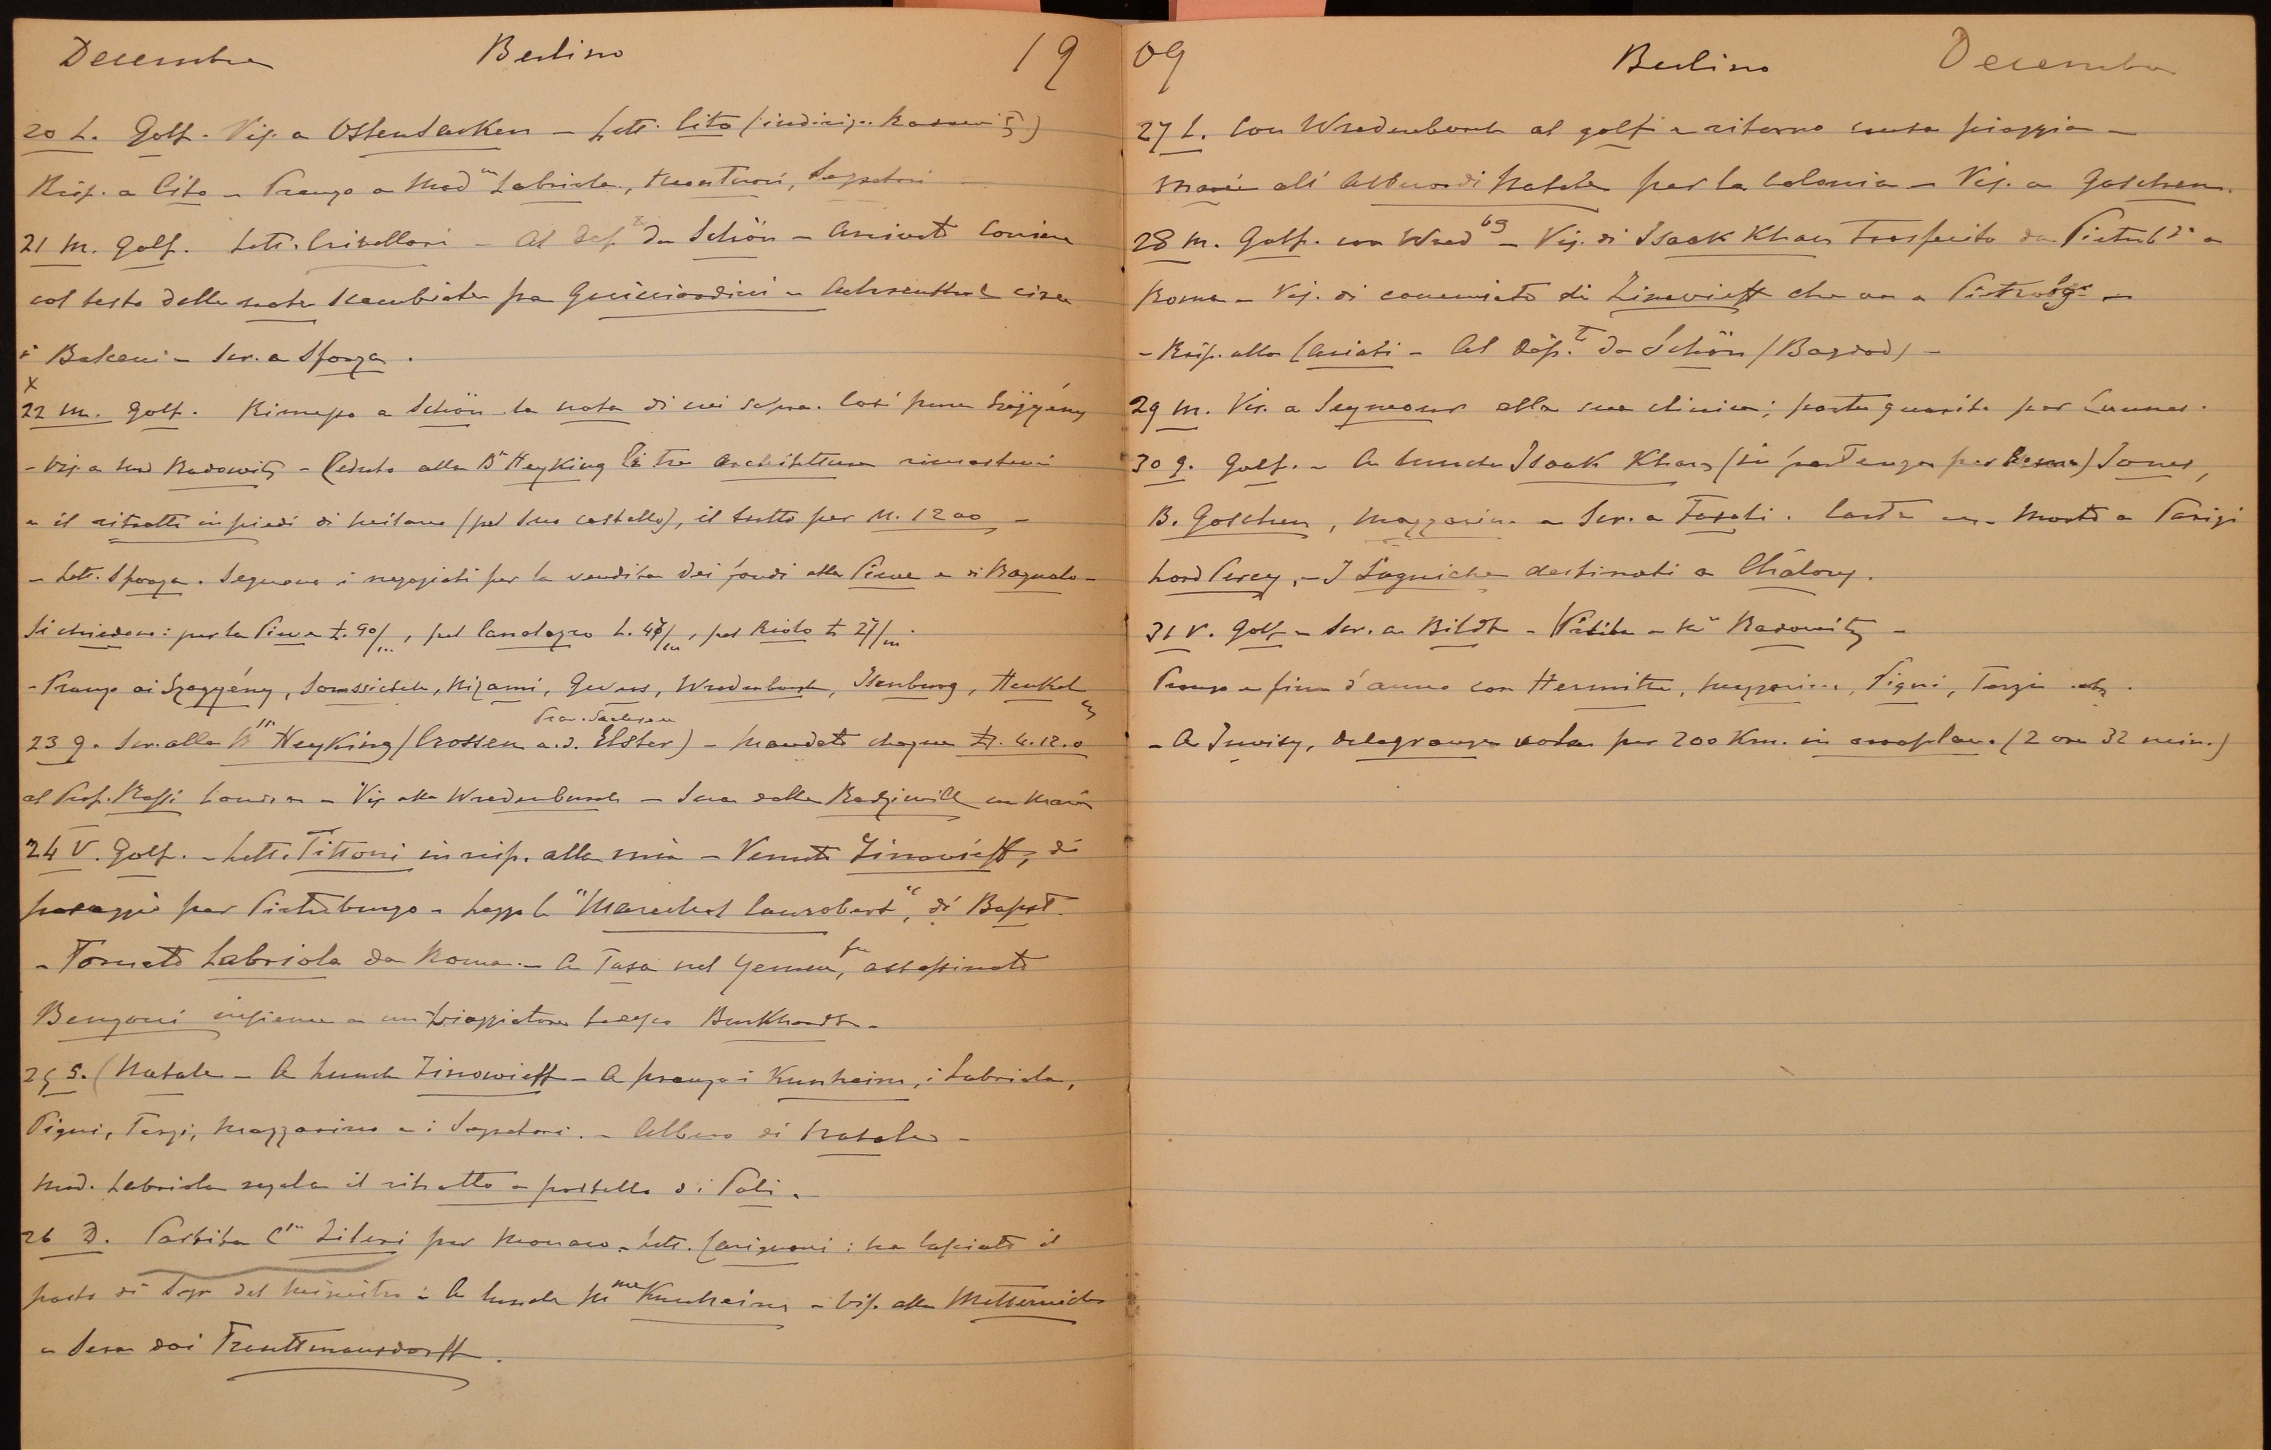 Decembre Berlino 19
20 L. Golf. Vis. a Osten Sacken – Lett. Cito
Risp. a Cito – Pranzo a Mad.e Labriola, Segretari –
21 M. Golf. Lett. Crivellari – Al Dep.t da Schön – Arrivato Corriere
col testo delle note scambiate fra Guicciardini e Aehrenthal circa
i Balcani – Scr. a Sforza.
x
22 M. Golf. Rimesso a Schön la nota di cui sopra. Così pure Szögyény
– Vis. a Radowitz – Ceduto alla B.ne Heyking le tre architetture rimastemi
e il ritratto in piedi di (pel suo castello), il tutto per M. 1200 –
– Lett. Sforza. Seguono i negoziati per la vendita dei fondi alla Pieve e di Bagnolo –
Si chiedono: per la Pieve L. 90/m, pel L. /m, pel Riolo L. 27/m.
– Pranzo ai Szögyény, Somssich, Nizami, Gevers, Wredenburch, Isenburg, Henkel
Prov. Sachsen
23 g. Scr. alla B.ne Heyking (Crossen a. d. Elster) – Mandato chèque £. 4.12.0
al Prof. Rossi Londra – Vis. alla Wredenburch – Sera dalla Radziwill
24 V. Golf. – Lett. Tittoni in risp. alla mia – Venuto Zinowieff, di
passaggio per Pietroburgo – Leggo le "Marechal Canrobert", di Bapst.
– Tornato Labriola da Roma. – A Tasa nel Yemen, fu assassinato
Benzoni insieme a un viaggiatore tedesco Burkhardt –
25 S. (Natale – A lunch Zinowieff – A pranzo i Kunheim, i Labriola,
Pigni, Targi, Mazzarino e i Segretari. – Albero di Natale –
Mad. Labriola regala il ritratto a pastello di Poli.
26 D. Partita C.ssa Zileri per Monaco – Lett. Carignani: ha lasciato il
posto di Segr. del Ministro – A lunch M.me Kunheim – Vis. alla Metternich
– Sera dai Trauttmansdorff.
09 Berlino Decembre
27 L. Con Wredenburch al golf e ritorno causa pioggia –
all'Albero di Natale per la Colonia – Vis. a Goschen.
28 M. Golf. con Wred.bg – Vis. di Isaak Khan trasferito da Pietrob.go a
Roma – Vis. di commiato di Zinowieff che va a Pietrobg.o –
– Risp. alla Cariati – Al Dép.t da Schön (Bagdad) –
29 M. Vis. a Seymour alla sua clinica; parte guarito per Cannes.
30 g. Golf. – A lunch Isaak Khan (in partenza per Roma) Jones,
B. Goschen, Mazzarino – Scr. a Fasati. Morto a Parigi
Lord Percy, – destinati a Châlons.
31 V. Golf – Scr. a Bildt – Visita a Radowitz –
Pranzo e fine d'anno con Hermitte, Mazzarino, Pigni, Targi etc.
– A Juvisy, Delagrange vola per 200 Km. in aeroplano (2 ore 32 min.)